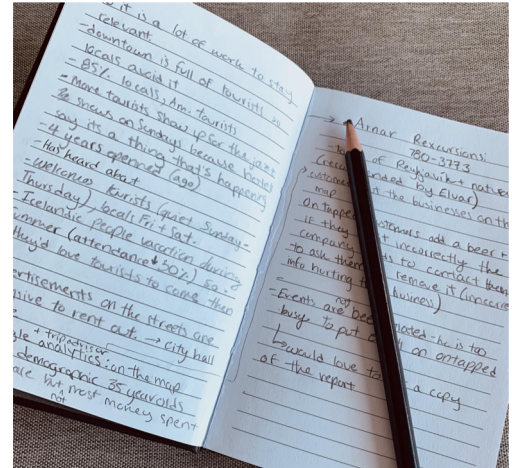 it is a lot of work to stay
relevant
-downtown is full of tourists so
locals avoid it
-85% locals, Am. tourists
-More tourists show up for the jazz
shows on Sundays because hostel
say its a thing that's happening
-4 years opened (ago)
-Has heard about
-welcomes tourists (quiet Sunday-
Thursday) locals Fri + Sat.
-Icelandic people vacation during
summer (attendance ↓ 30%) so
they'd love tourists to come then
ertisements on the streets are
sive to rent out. → City hall
+ tripadvisor
gle analytics: on the map
demographic 35 year olds
are but most money spent
not
→ Arnar Rexcursions:
780-3773
of Reykjavik + nature
(reco nded by Elvar)
customers t the businesses on the
map
On tapped customers add a beer +
IF they incorrectly the
company ds to contact them
to ask them remove it (incorrect
info hurting business)
-Events are not been noted - he is too
busy to put on ontapped
↳ would love to a copy
of the report